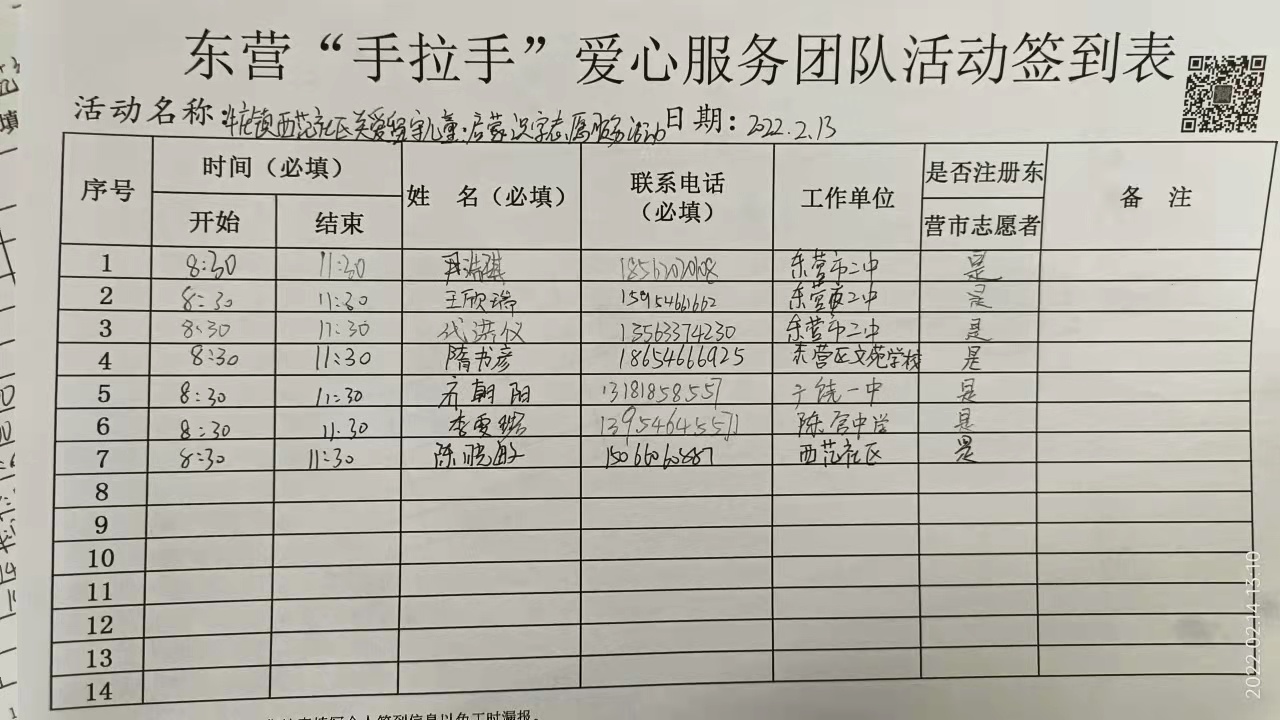 东营“手拉手”爱心服务团队活动签到表
活动名称：牛庄镇西范社区关爱留守儿童：启蒙识字志愿服务活动 日期：2022.2.13
序号 时间（必填） 姓 名（必填） 联系电话（必填） 工作单位 是否注册东营市志愿者 备 注
开始 结束
1 8:30 11:30 东营市二中 是
2 8:30 11:30 王欣瑞 15954661662 东营市二中 是
3 8:30 11:30 代洪仪 13563374230 东营市二中 是
4 8:30 11:30 隋书彦 18654666925 东营区文苑学校 是
5 8:30 11:30 齐朝阳 13181858557 广饶一中 是
6 8:30 11:30 李雯瑞 13954645571 陈官中学 是
7 8:30 11:30 陈晓敏 15066060887 西范社区 是
8
9
10
11
12
13
14
个人签到信息以免工时漏报。
2022.02.14 13:10